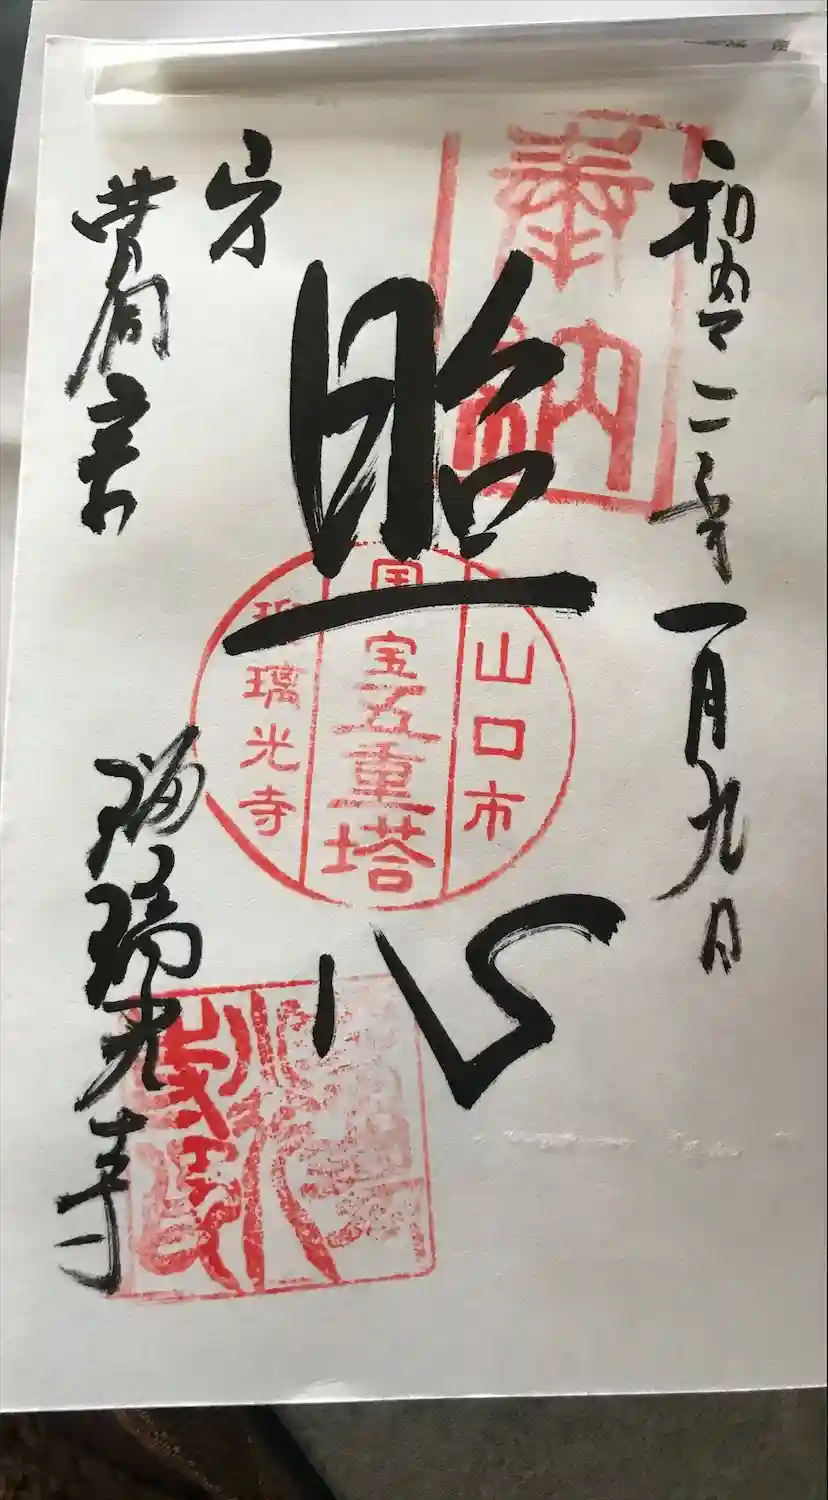 奉納
和令二年一月九日
照心
山口市
国宝五重塔
瑠璃光寺
曹洞宗
瑠璃光寺